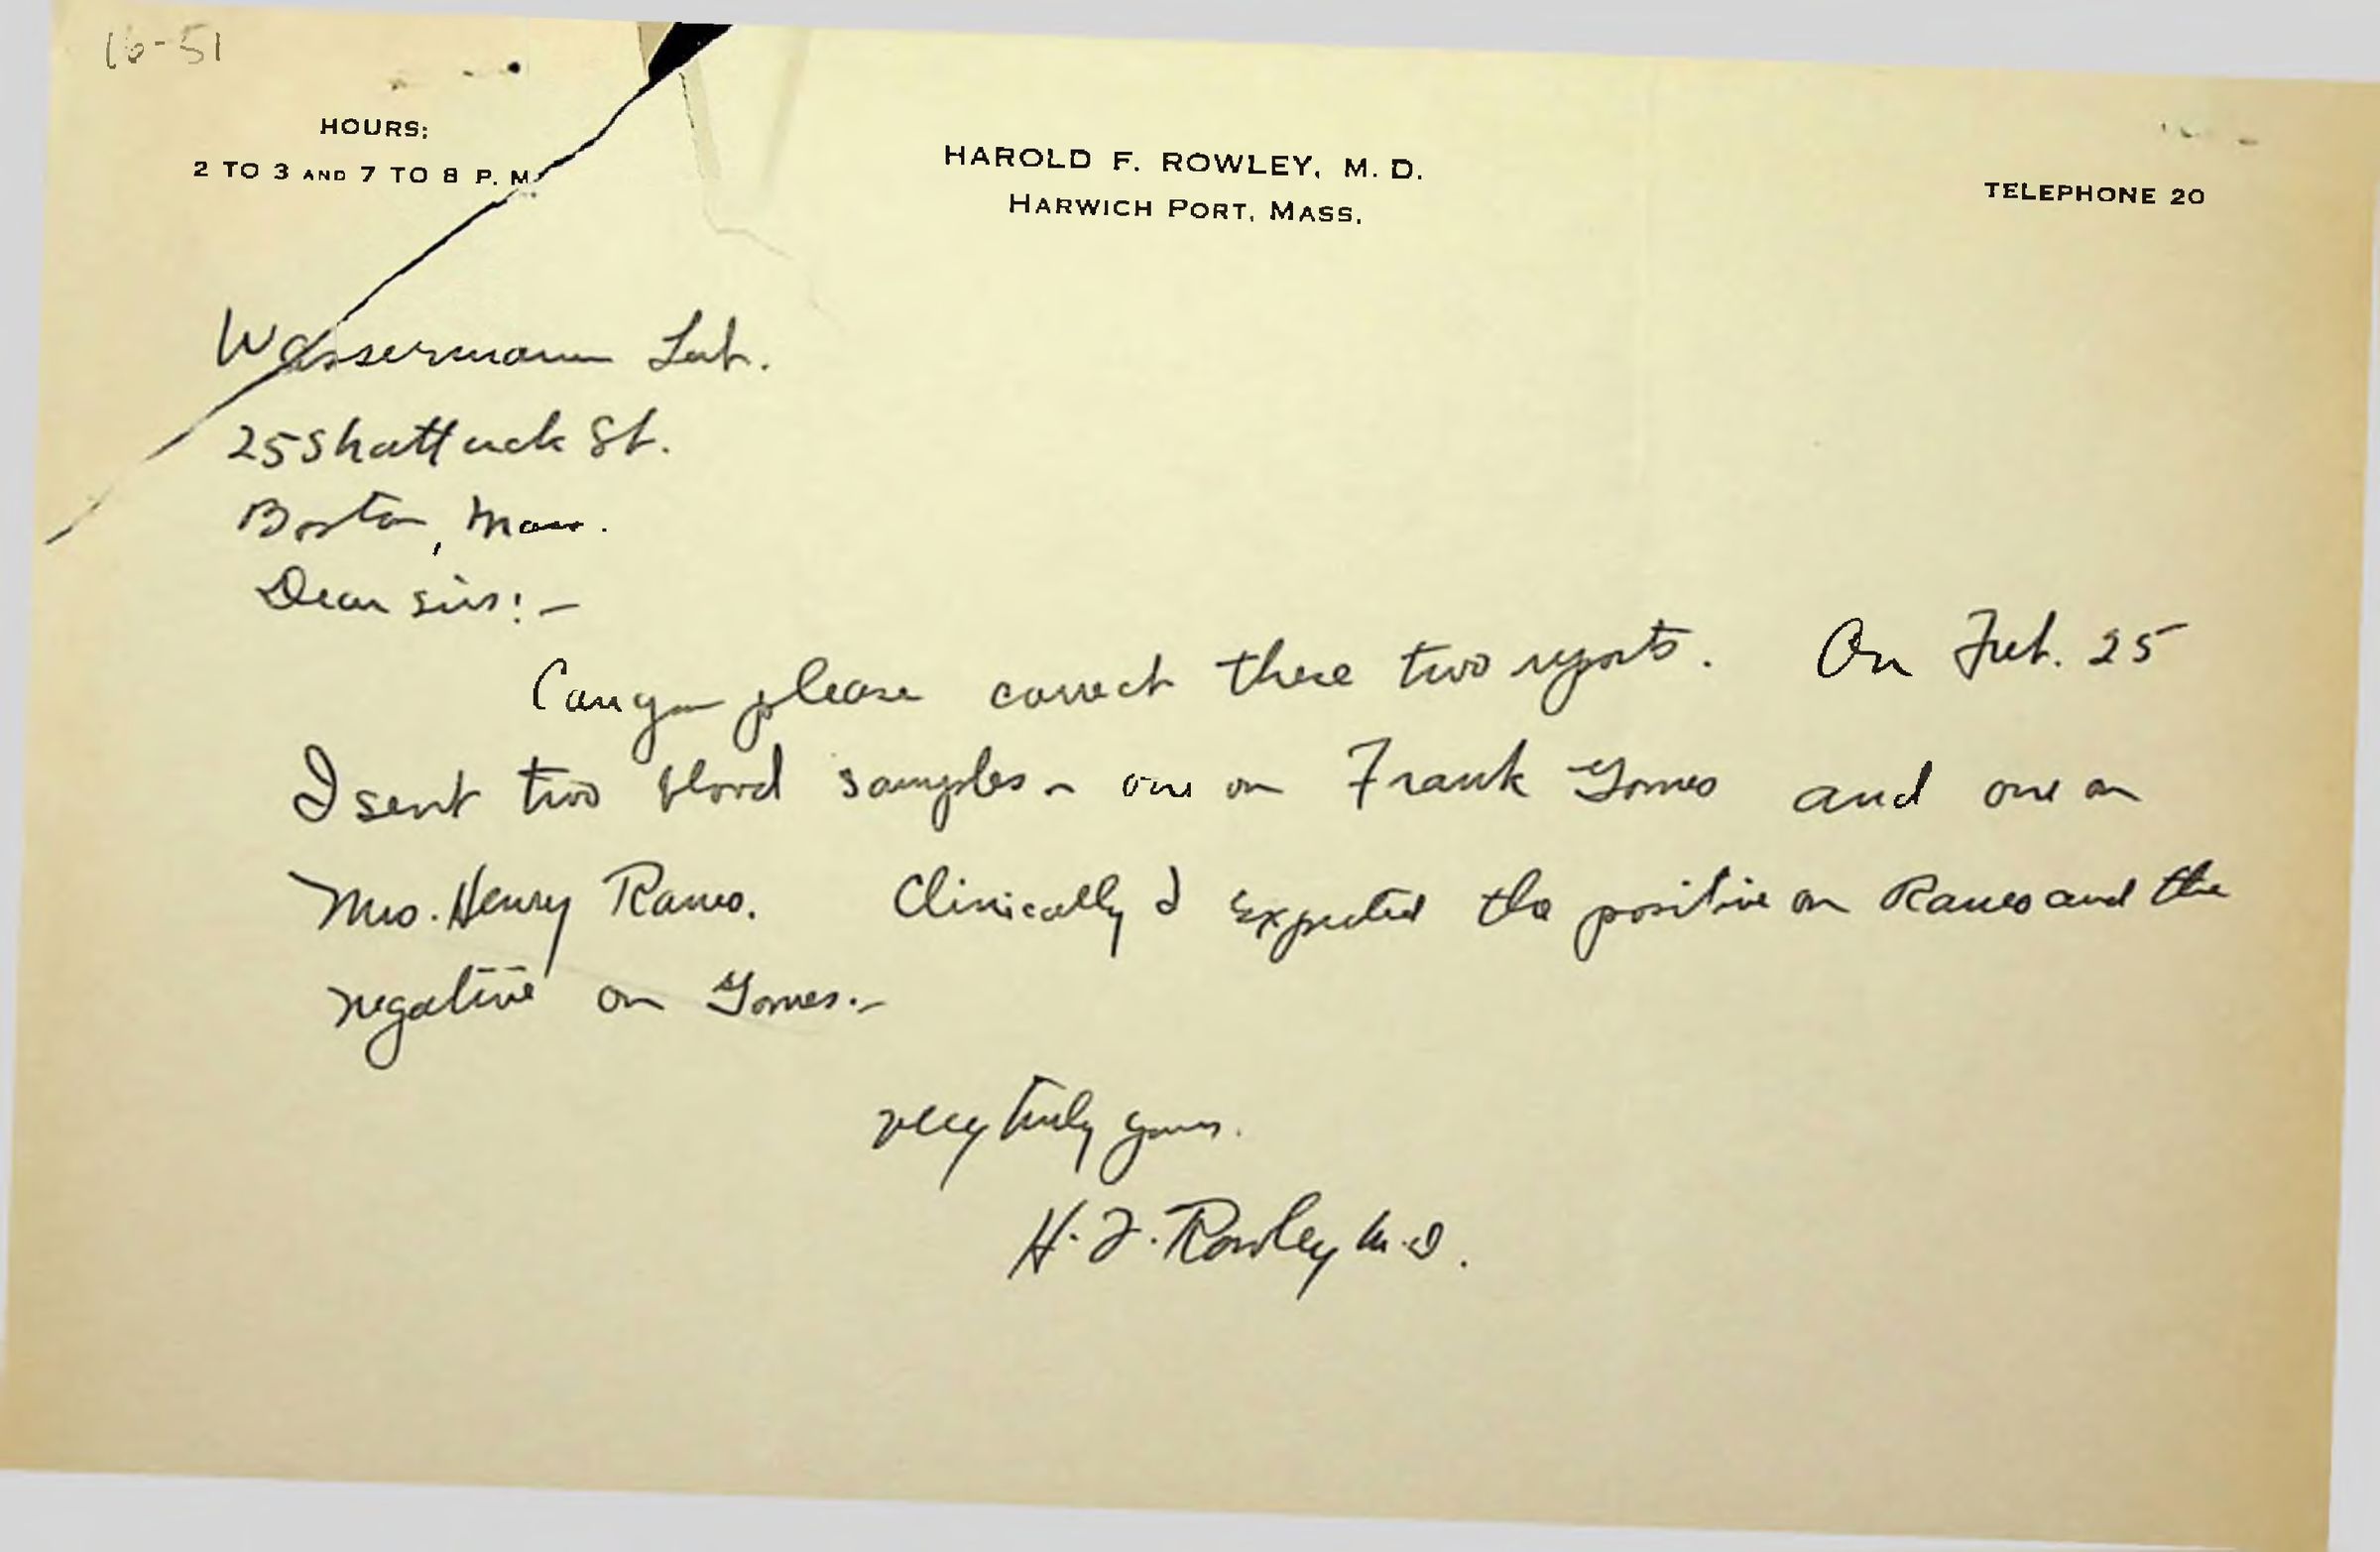 16-51
HOURS:
2 TO 3 AND 7 TO 8 P. M.
HAROLD F. ROWLEY, M. D.
HARWICH PORT, MASS.
TELEPHONE 20
Wassermann Lab.
25 Shattuck St.
Boston, Mass.
Dear sirs:-
Can you please correct these two reports. On Feb. 25
I sent two blood samples - one on Frank Gomes and one on
Mrs. Henry Ramos. Clinically I expected the positive on Ramos and the
negative on Gomes.-
very truly yours.
H. F. Rowley M.D.